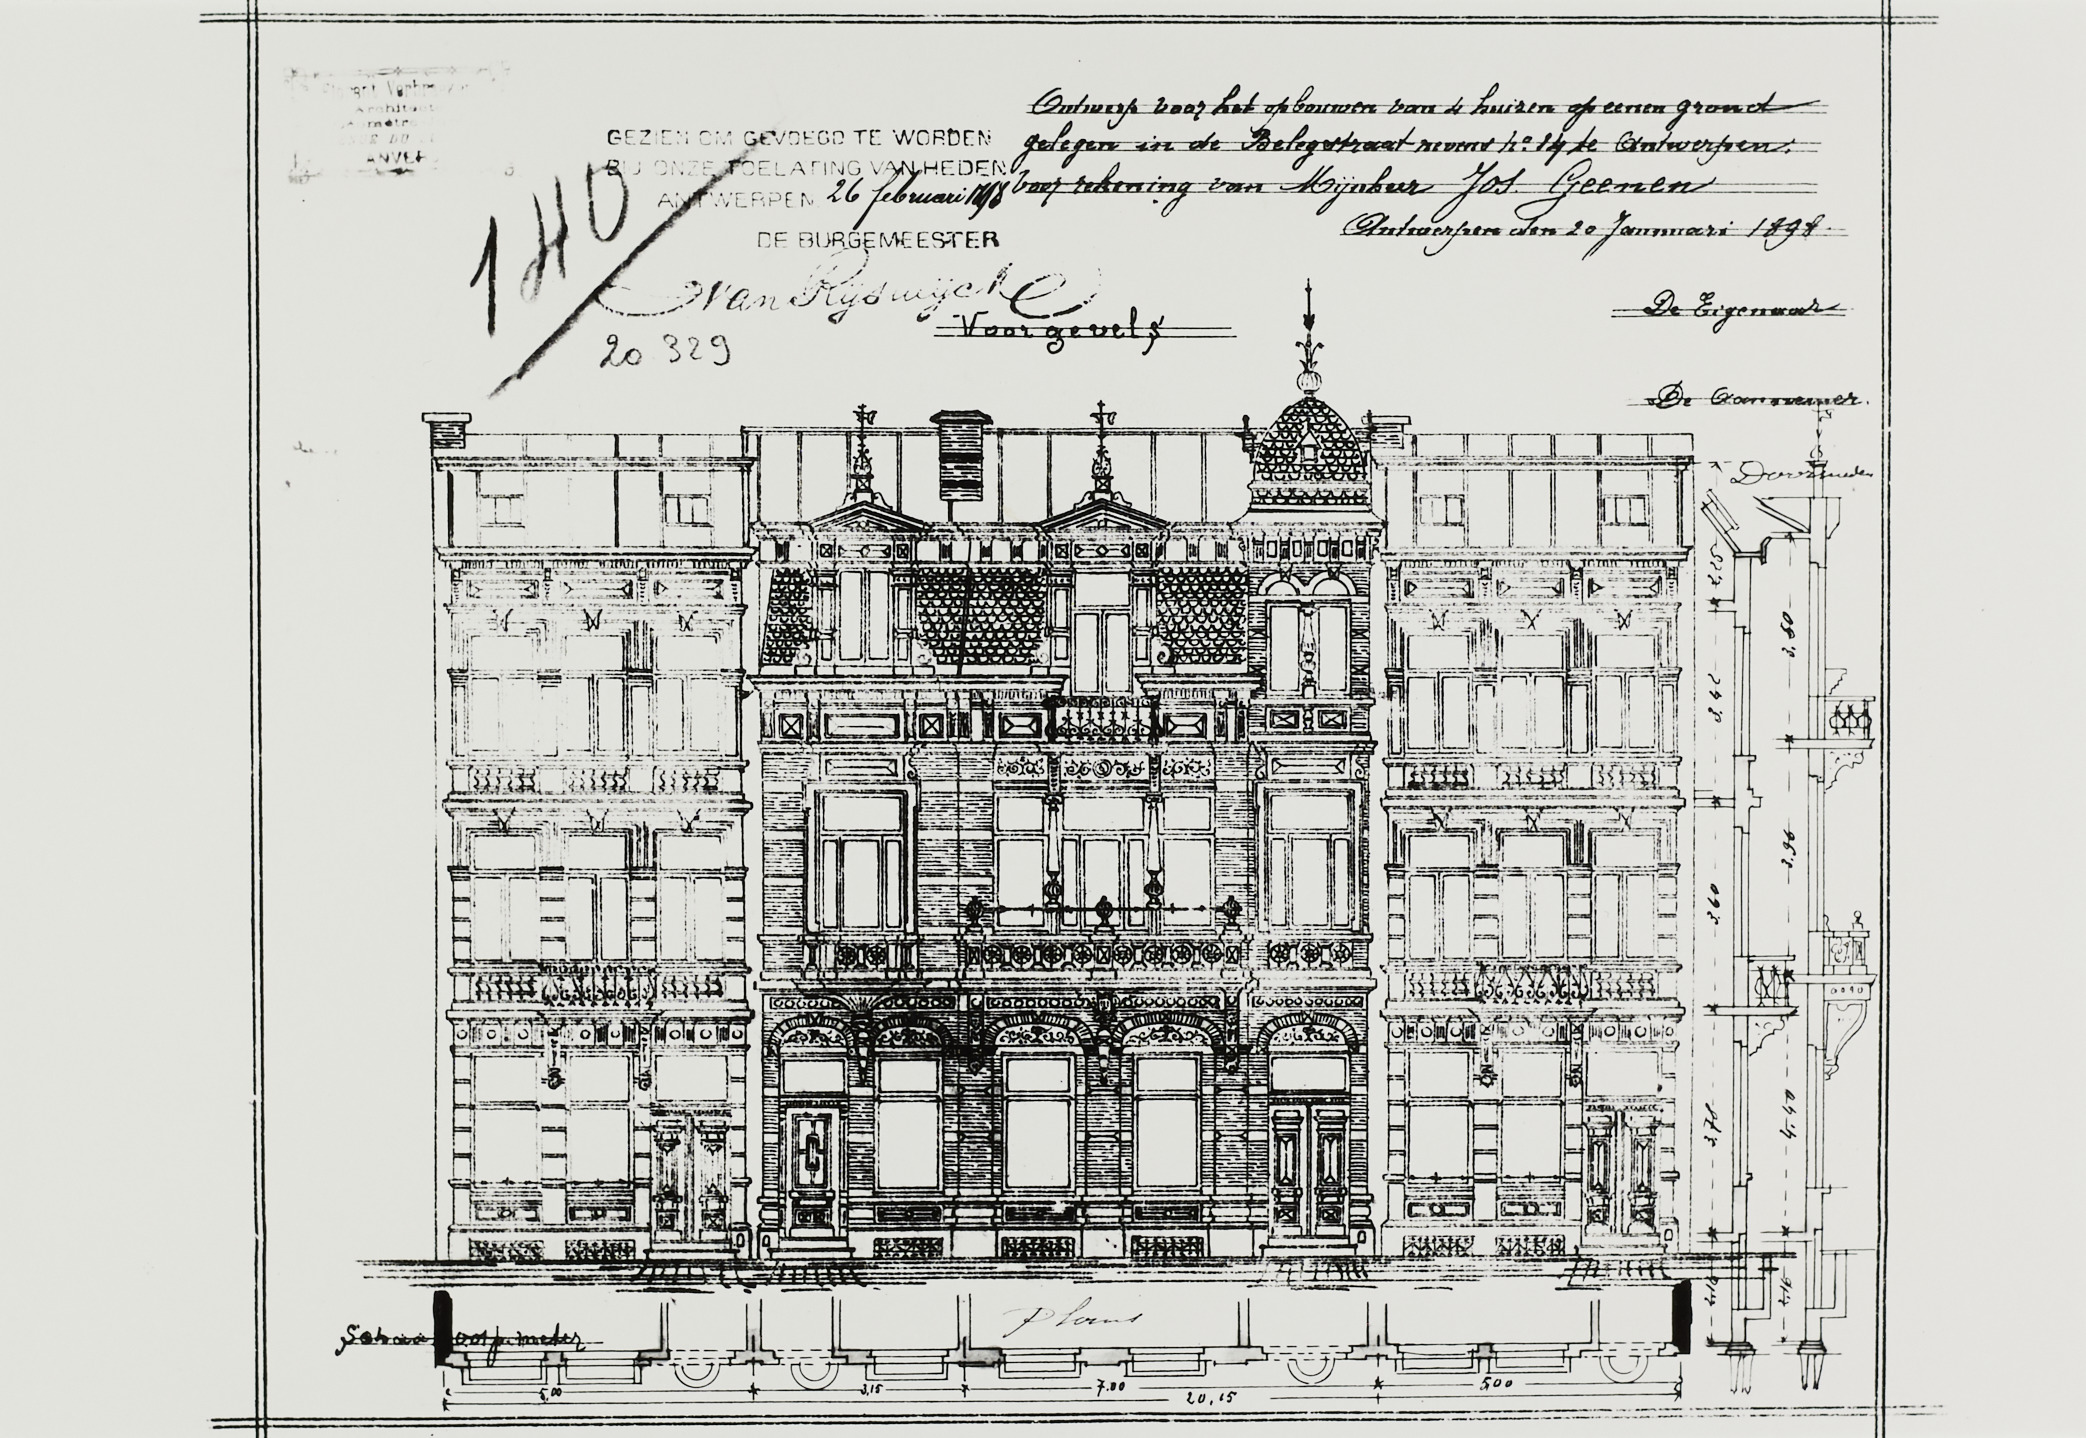 Architecte
ANVERS
GEZIEN OM GEVOEGD TE WORDEN
BIJ ONZE TOELATING VAN HEDEN
ANTWERPEN 26 februari 1898
DE BURGEMEESTER
Van Rijswijck
140
20.329
Ontwerp voor het opbouwen van 4 huizen op eenen grond
gelegen in de Belegstraat nevens No 14 te Antwerpen.
voor rekening van Mijnheer Jos. Geenen
Antwerpen den 20 Januari 1898.
De Eigenaar
De Aannemer.
Voorgevels
Doorsneden
3.80
3.42
3.96
3.60
4.40
3.78
Plans
p. meter
5,00
3,15
7.00
500
20,15